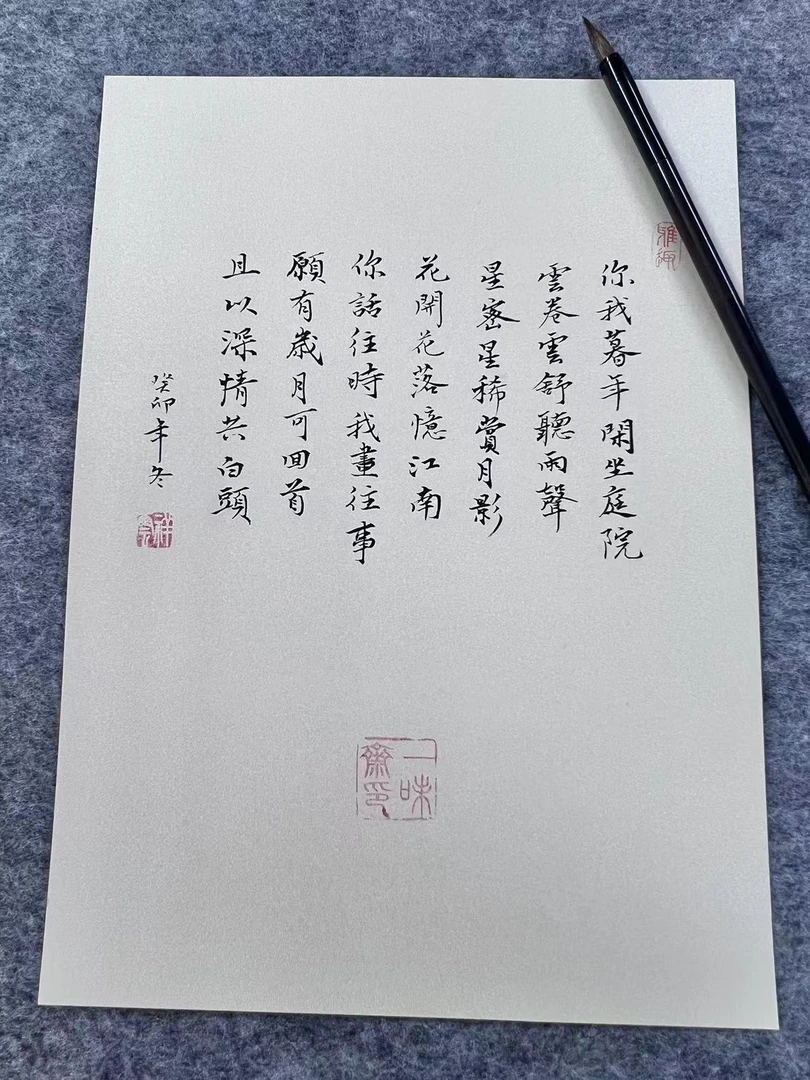 你我暮年閑坐庭院
雲卷雲舒聽雨聲
星密星稀賞月影
花開花落憶江南
你話往時我畫往事
願有歲月可回首
且以深情共白頭
癸卯年冬
一味齋印